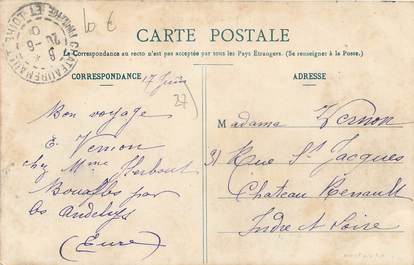 10 €
CARTE POSTALE
La Correspondance au recto n'est pas acceptée par tous les Pays Étrangers. (Se renseigner à la Poste.)
CORRESPONDANCE
17 Juin
27
Bon voyage
E. Vernon
chez Mme Herbout
Bouafles par
les Andelys
(Eure)
ADRESSE
Madame Vernon
31 Rue St Jacques
Chateau Renault
Indre et Loire